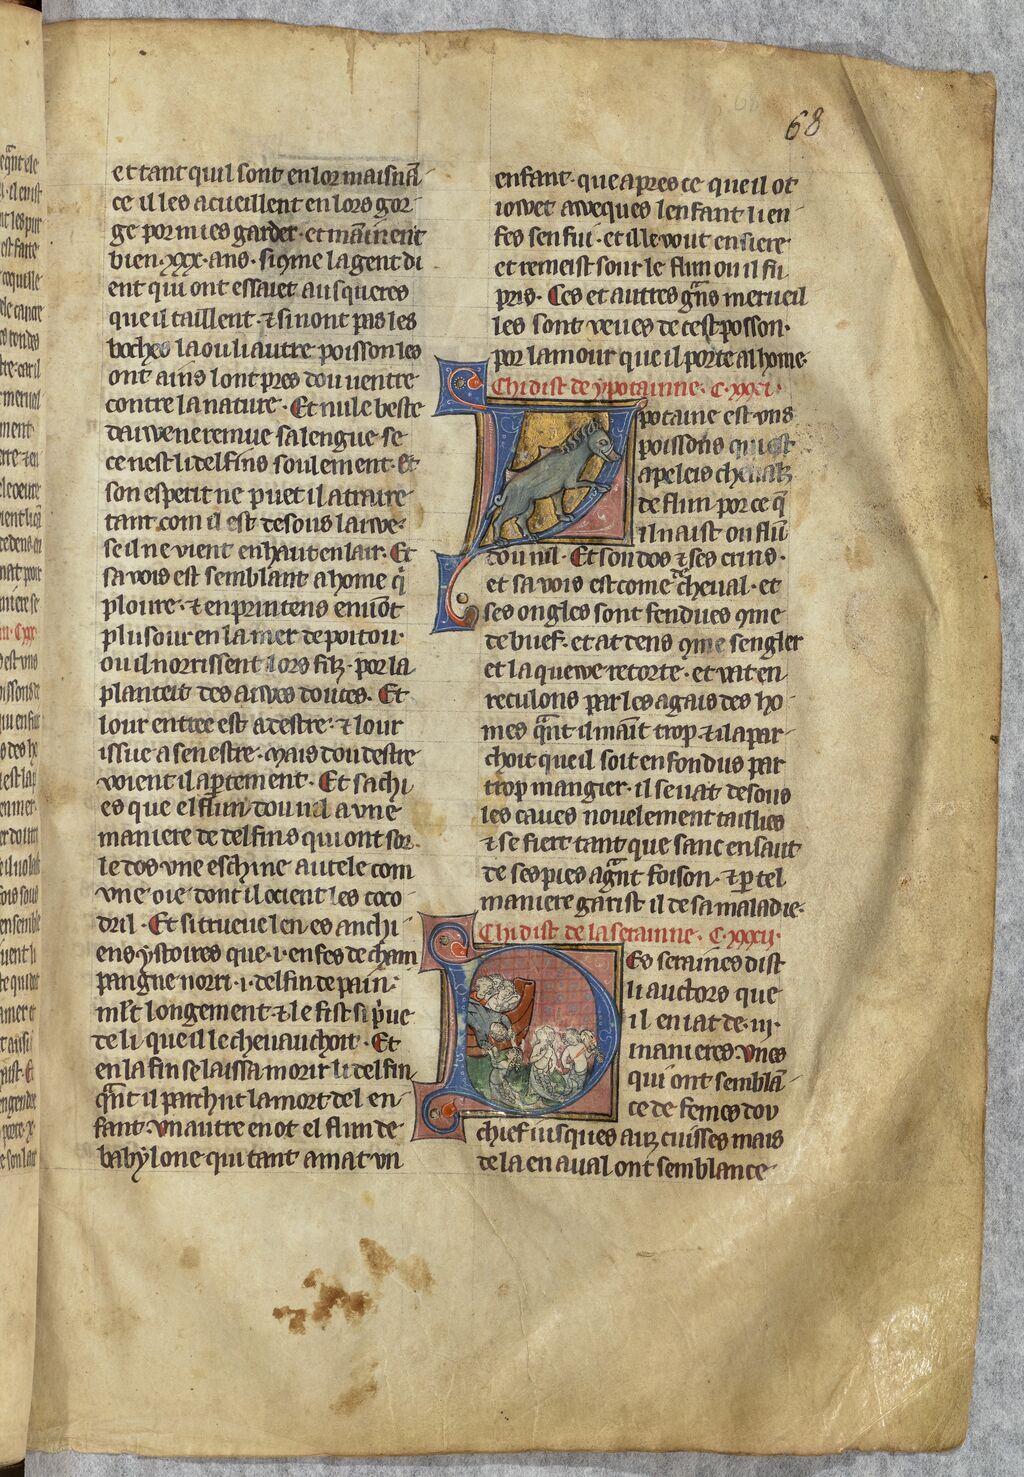 68
et tant quil sont en lor maisnā
ce il les acueillent en lors gor
ge por mies garder · et mainent
bien · xxx · ans · si 9me la gent di
ent qui ont essaiet ausqueres
que il taillent · ⁊ si nont pas les
boches la ou li autre poisson les
ont ains lont pres dou uentre
contre la nature · Et nule beste
daiwe ne remue sa lengue se
ce nest li delfins soulement · Et
son esperit ne puet il atraire
tant com il est desous laiwe ·
se il ne vient en haut en lair · Et
sa vois est semblant a home q̄
ploure · ⁊ en printens en uōt
plusour en la mer de poitou ·
ou il norrissent lors filz · por la
planteit des aiwes douces · Et
lour entree est a destre · ⁊ lour
issue a senestre · mais dou destre
voient il apertement · Et sachi
es que el flun dou nil a une
maniere de delfins qui ont sor
le dos vne eschine autele com
vne oie dont il ocient les coco
dril · Et si trueue len es anchi
ens ystoires que · i · enfes de cham
pangne norri · i · delfin de pain
mlt longement ⁊ le fist si priue
de li que il le cheuauchoit · Et
en la fin se laissa morir li delfin
q̄nt il parchut la mort del en
fant · vn autre en ot el flun de
babylone qui tant amat vn
enfant · que apres ce que il ot
iowet aweques lenfant li en
fes senfui · et il le vout ensiere
et remeist sour le flun ou il fu
pris · Ces et autres g̃ns merueil
les sont veues de cest posson ·
por lamour que il porte al home ·
Chi dist de ypotainne · C · xxxi ·
potaine est vns
poissons qui est
apeleis cheualz
de flun por ce q̄
il naist ou flū
dou nil · Et son dos ⁊ ses crins ·
et sa vois est come de cheual · et
ses ongles sont fendues 9me
de buef · et at dens 9me sengler
et la quewe retorte · et vat en
reculons par les agais des ho
mes q̄nt il māit trop · ⁊ il apar
choit que il soit enfondus par
trop mangier · il se uat desous
les caues nouelement taillies
⁊ se fiert tant que sanc en saut
de ses pies a g̃nt foison · ⁊ p tel
maniere garist il de sa maladie ·
Chi dist de la serainne · C · xxxii ·
Des seraines dist
li auctors que
il en iat de · iii ·
manieres · vnes
qui ont semblā
ce de femes dou
chief iusques aux cuisses mais
de la en aual ont semblance